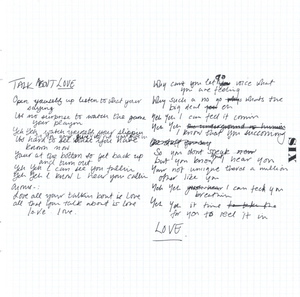 TALK ABOUT LOVE
Open yourself up listen to what your
saying
its no surprise to watch the game
your playin
Yeh Yeh watch yourself your slippin
its hard to see what you have
known now
Your at the bottom to get back up
and turn out
Yeh Yeh I can see you fallin
Yeh Yeh I knew I hear you callin
all that you talk about is love
love love.
Why cant you let go voice what
you are feeling
Why such a no go whats the
big deal
Yeh Yeh I can feel it comin
Yeh Yeh
I know that you becoming
So you dont speak now
but you know I hear you
Your not unique theres a million
other like you
Yeh Yeh I can feel you
breathin
Yeh Yeh its time
for you to reel it in
LOVE.
SIX